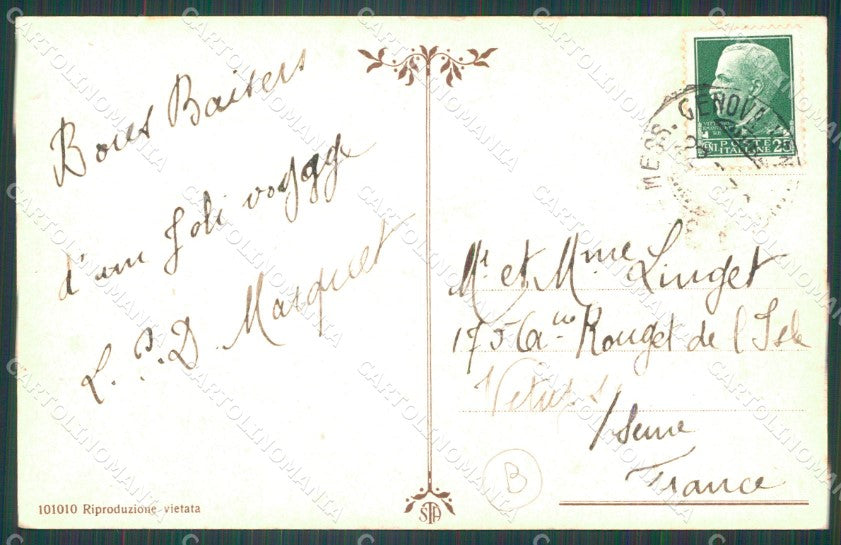 Bons Baisers
d'um Joli voyage
L. P. D. Marquet
MESS. GENOVA
POSTE
ITALIANE
CENT 25
Mr et Mme Linget
175 Rouget de l Isle
/Seine
France
B
STA
101010 Riproduzione vietata
CARTOLINOMANIA